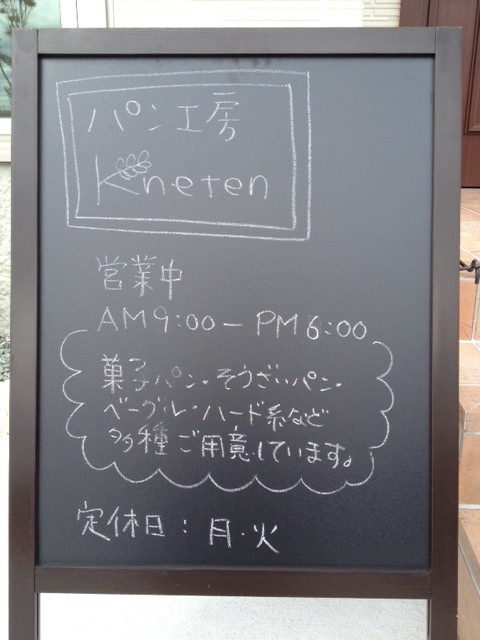 パン工房
Kneten
営業中
AM9:00-PM6:00
菓子パン・そうざいパン・
ベーグル・ハード系など
多種ご用意しています。
定休日：月・火